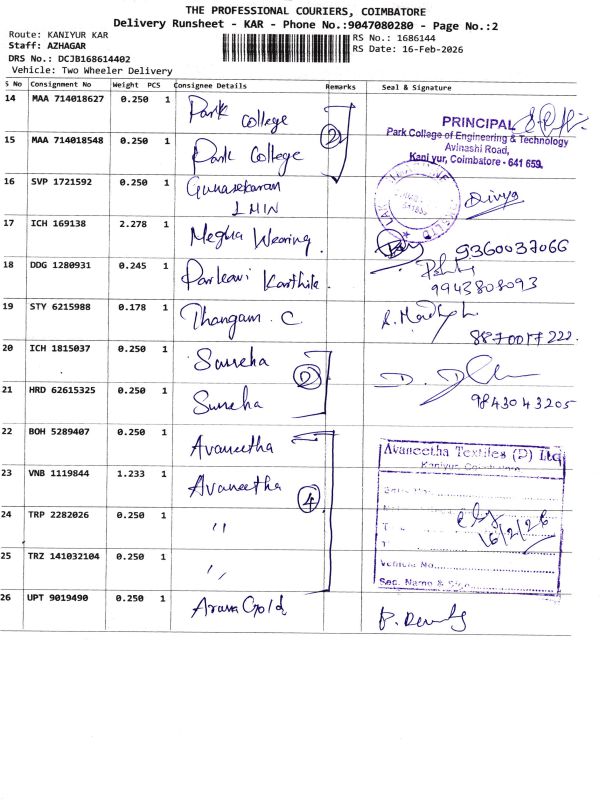 THE PROFESSIONAL COURIERS, COIMBATORE
Delivery Runsheet - KAR - Phone No.:9047080280 - Page No.:2
Route: KANIYUR KAR
RS No.: 1686144
Staff: AZHAGAR
RS Date: 16-Feb-2026
DRS No.: DCJB168614402
Vehicle: Two Wheeler Delivery
S No Consignment No Weight PCS Consignee Details Remarks Seal & Signature
14 MAA 714018627 0.250 1 Park College
PRINCIPAL
Park College of Engineering & Technology
Avinashi Road,
Kaniyur, Coimbatore - 641 659.
2
15 MAA 714018548 0.250 1 Park College
16 SVP 1721592 0.250 1 Gunasekaran
1 MIN
Divya
17 ICH 169138 2.278 1 Megha Wearing
9360037066
18 DDG 1280931 0.245 1 Karthik
9943808093
19 STY 6215988 0.178 1 Thangam. C
8870017222
20 ICH 1815037 0.250 1 Sumeha
2
21 HRD 62615325 0.250 1 Sumeha
9843043205
22 BOH 5289407 0.250 1 Avaneetha
Avaneetha Textiles (P) Ltd
23 VNB 1119844 1.233 1 Avaneetha
4
24 TRP 2282026 0.250 1 "
16/2/26
25 TRZ 141032104 0.250 1 "
Vehicle No.
Sec. Name & Sign
26 UPT 9019490 0.250 1 Gold